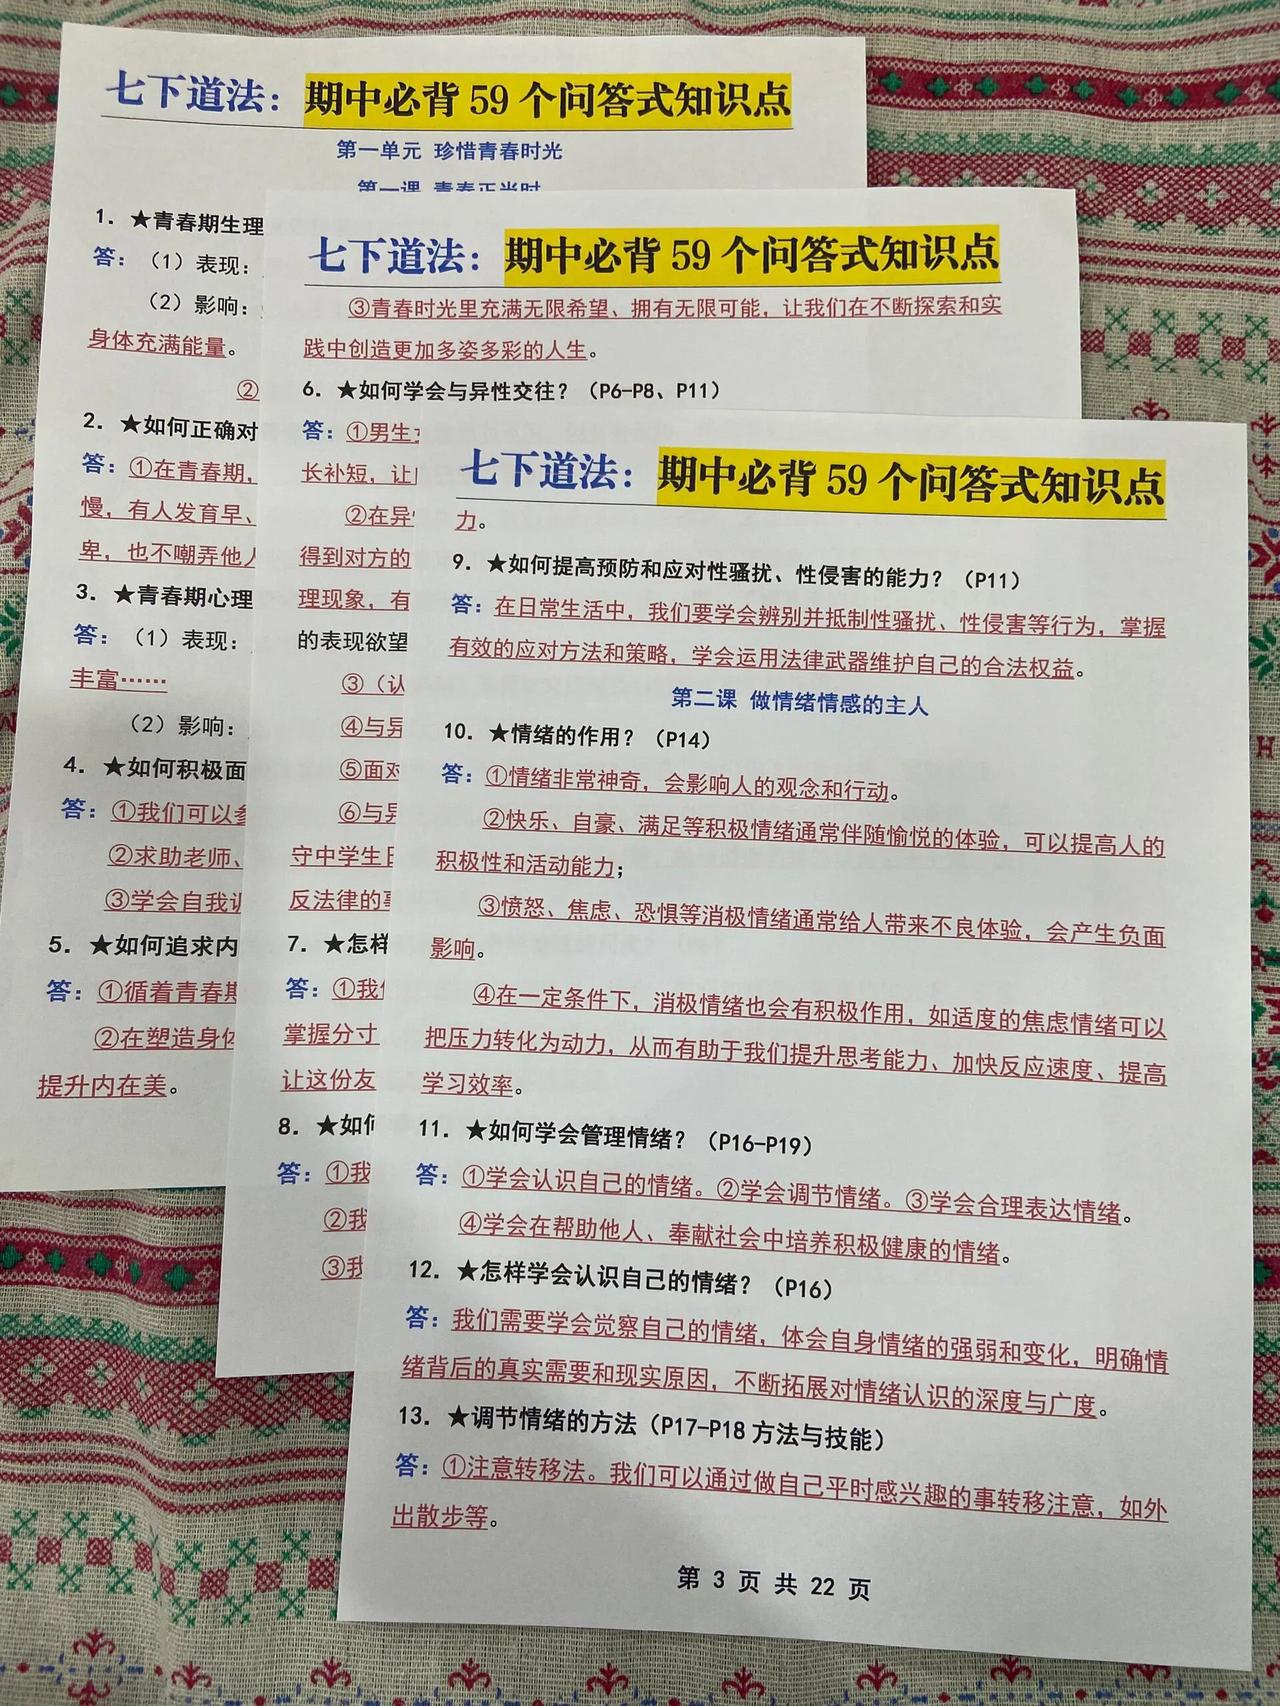 七下道法：期中必背 59 个问答式知识点
第一单元 珍惜青春时光
第一课 青春正当时
1. ★青春期生理
答：（1）表现：
（2）影响：
身体充满能量。
②
2. ★如何正确对
答：①在青春期，
慢，有人发育早、
卑，也不嘲弄他人
3. ★青春期心理
答：（1）表现：
丰富……
（2）影响：
4. ★如何积极面
答：①我们可以多
②求助老师、
③学会自我调
5. ★如何追求内
答：①循着青春期
②在塑造身体
提升内在美。
七下道法：期中必背 59 个问答式知识点
③青春时光里充满无限希望、拥有无限可能，让我们在不断探索和实
践中创造更加多姿多彩的人生。
6. ★如何学会与异性交往？（P6-P8、P11）
答：①男生
长补短，让
②在异
得到对方的
理现象，有
的表现欲望
③（认
④与异
⑤面对
⑥与异
守中学生日
反法律的事
7. ★怎样
答：①我们
掌握分寸
让这份友
8. ★如何
答：①我
②我
③我
七下道法：期中必背 59 个问答式知识点
力。
9. ★如何提高预防和应对性骚扰、性侵害的能力？（P11）
答：在日常生活中，我们要学会辨别并抵制性骚扰、性侵害等行为，掌握
有效的应对方法和策略，学会运用法律武器维护自己的合法权益。
第二课 做情绪情感的主人
10. ★情绪的作用？（P14）
答：①情绪非常神奇，会影响人的观念和行动。
②快乐、自豪、满足等积极情绪通常伴随愉悦的体验，可以提高人的
积极性和活动能力；
③愤怒、焦虑、恐惧等消极情绪通常给人带来不良体验，会产生负面
影响。
④在一定条件下，消极情绪也会有积极作用，如适度的焦虑情绪可以
把压力转化为动力，从而有助于我们提升思考能力、加快反应速度、提高
学习效率。
11. ★如何学会管理情绪？（P16-P19）
答：①学会认识自己的情绪。②学会调节情绪。③学会合理表达情绪。
④学会在帮助他人、奉献社会中培养积极健康的情绪。
12. ★怎样学会认识自己的情绪？（P16）
答：我们需要学会觉察自己的情绪，体会自身情绪的强弱和变化，明确情
绪背后的真实需要和现实原因，不断拓展对情绪认识的深度与广度。
13. ★调节情绪的方法（P17-P18 方法与技能）
答：①注意转移法。我们可以通过做自己平时感兴趣的事转移注意，如外
出散步等。
第 3 页 共 22 页